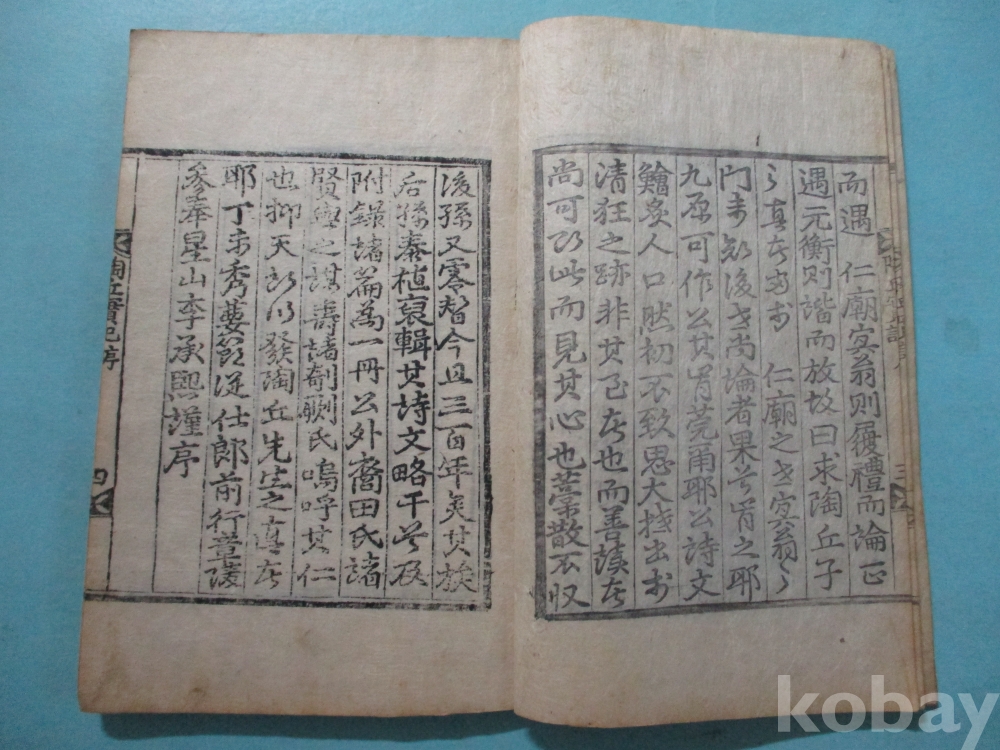 而遇 仁廟寅翁則履禮而論正
遇元衡則諧而放故曰求陶丘子
之真者当於 仁廟之世寅翁之
門未知後世尚論者果首肯之耶
九原可作公其肯莞爾耶公詩文
鱠炙人口然初不致思大抵出於
清狂之跡非其至者也而善讀者
尚可即此而見其心也蒙散不收
後孫又零替今且三百年矣其族
后孫秦植裒輯其詩文略干首及
附錄諸篇爲一冊公外裔田氏諸
賢與之謀壽諸剞劂氏嗚呼其仁
也抑天所以發陶丘先生之真者
耶丁未秀葽節從仕郎前行章陵
參奉星山李承熙謹序
陶丘實記序
三
四
kobay